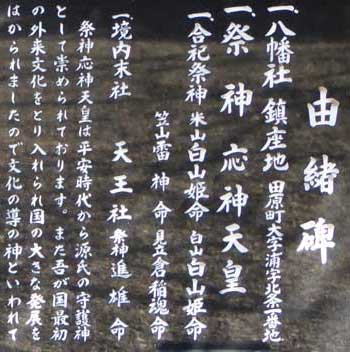 由緒碑
一、八幡社 鎮座地 田原町大字浦字北条一番地
一、祭神 応神天皇
一、合祀祭神 米山白山姫命 白山白山姫命
笠山雷神命 見立倉稲魂命
一、境内末社 天王社 祭神進雄命
祭神応神天皇は平安時代から源氏の守護神
として崇められております。また吾が国最初
の外来文化をとり入れられ国の大きな発展を
はかられましたので文化の導の神といわれて